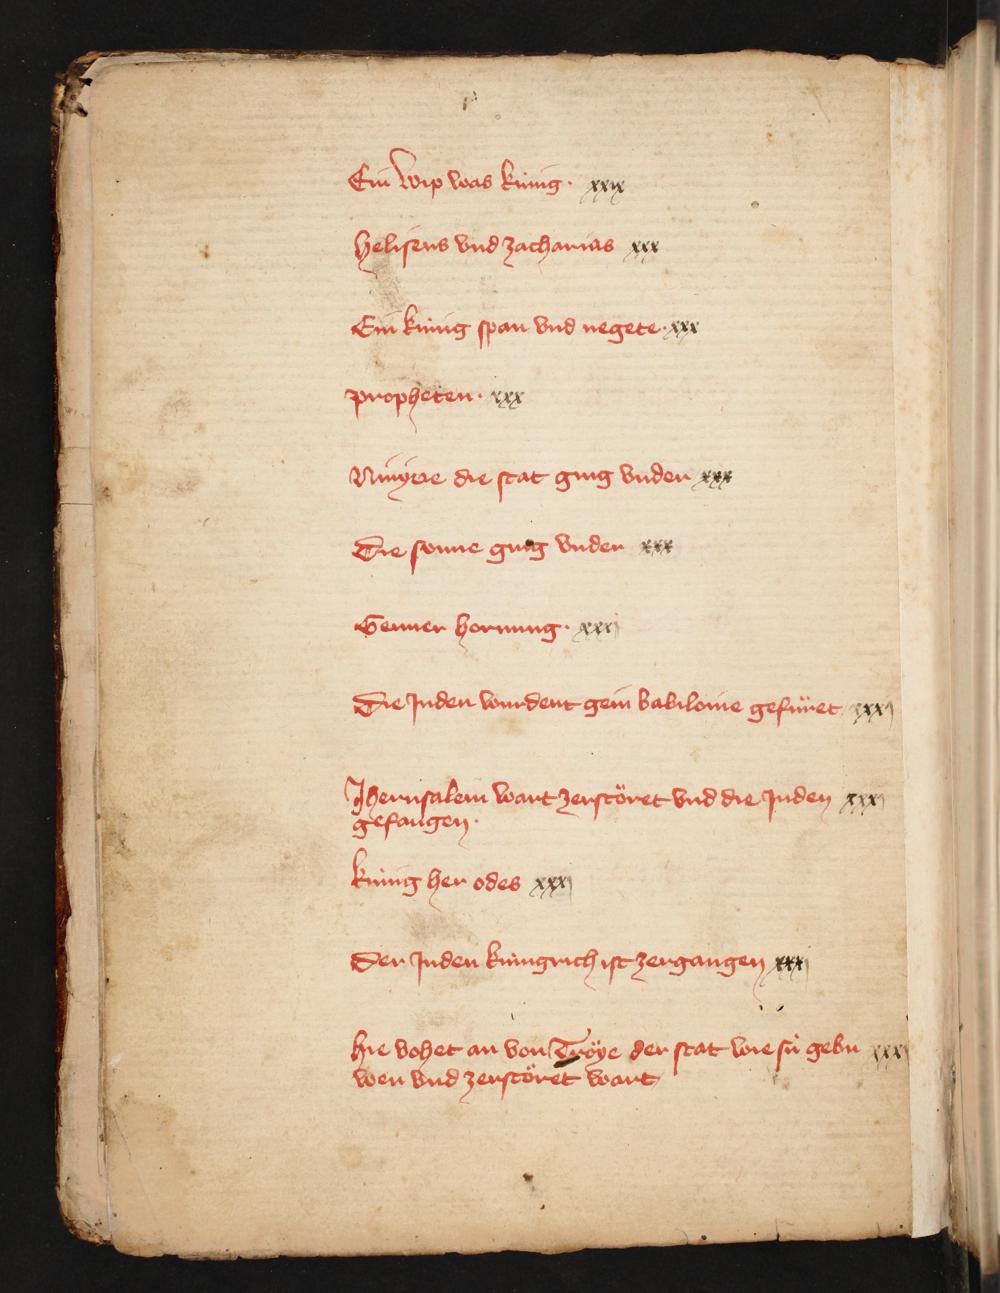 Ein wip was kúnig · xxix
Heliseus vnd zacharias xxx
Ein kúnig span vnd negete · xxx
propheten · xxx
Niniyee die stat ging vnder xxx
Die sonne ging vnder xxx
Genner hornung · xxxj
Die Juden wurdent gein babilonie gefúret xxxj
Jherusalem wart zerstöret vnd die Juden xxxj
gefangen ·
kúnig her odes xxxj
Der Juden kúnigrich ist zergangen xxxj
hie vohet an von Tröye der stat wie sú gebu xxxj
wen vnd zerstöret wart